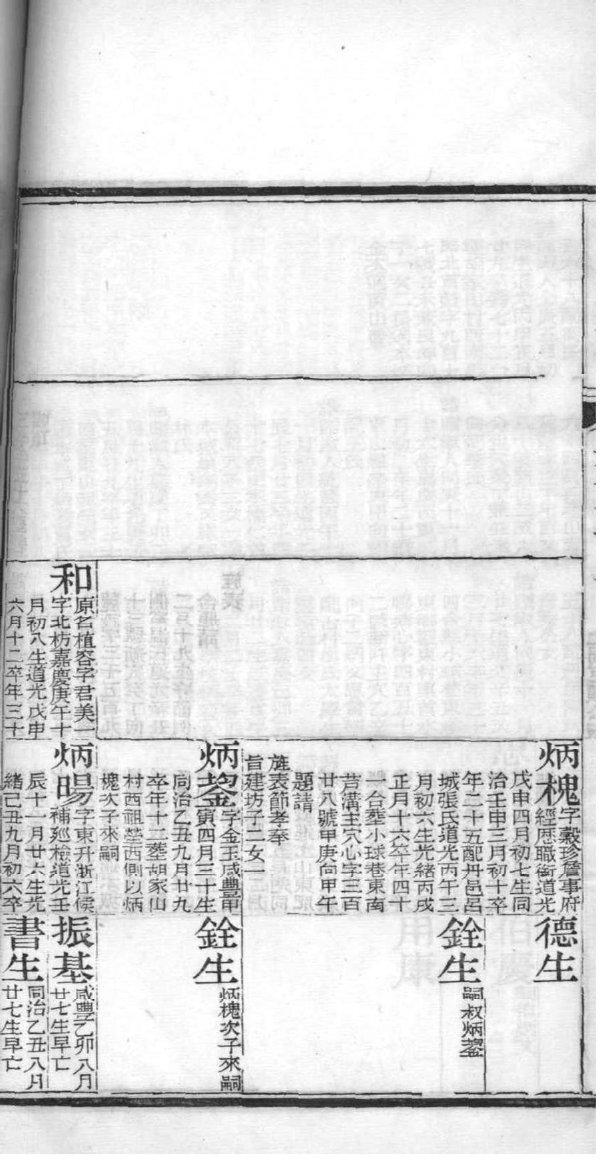 炳槐
字穀珍詹事府
經歷職銜道光
戊申四月初七生同
治壬申三月初十卒
年二十五配丹邑呂
城張氏道光丙午三
月初六生光緒丙戌
正月十六卒年四十
一合塟小球巷東南
芦溝主穴心字三百
廿八號甲庚向甲午
題請
旌表節孝奉
旨建坊子二女一
德生
銓生
嗣叔炳鋆
炳鋆
字金玉咸豐甲
寅四月三十生
同治乙丑九月廿九
卒年十二塟胡家山
村西祖塋西側以炳
槐次子來嗣
銓生
炳槐次子來嗣
和
原名植容字君美一
字北枋嘉慶庚午十
月初八生道光戊申
六月十二卒年三十
炳暘
字東升浙江候
補廵檢道光壬
辰十一月廿六生光
緒己丑九月初六卒
振基
咸豐乙卯八月
廿七生早亡
書生
同治乙丑八月
廿七生早亡